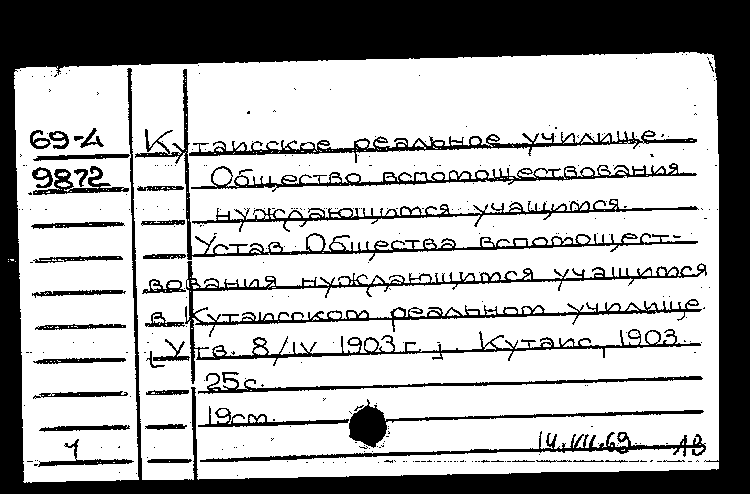 69-4 Кутаисское реальное училище.
9872 Общество вспомоществования
нуждающимся учащимся.
Устав Общества вспомощест-
вования нуждающимся учащимся
в Кутаисском реальном училище
[Утв. 8/IV 1903 г.]. Кутаис, 1903.
25с.
19см.
1 14.VII.69 АВ